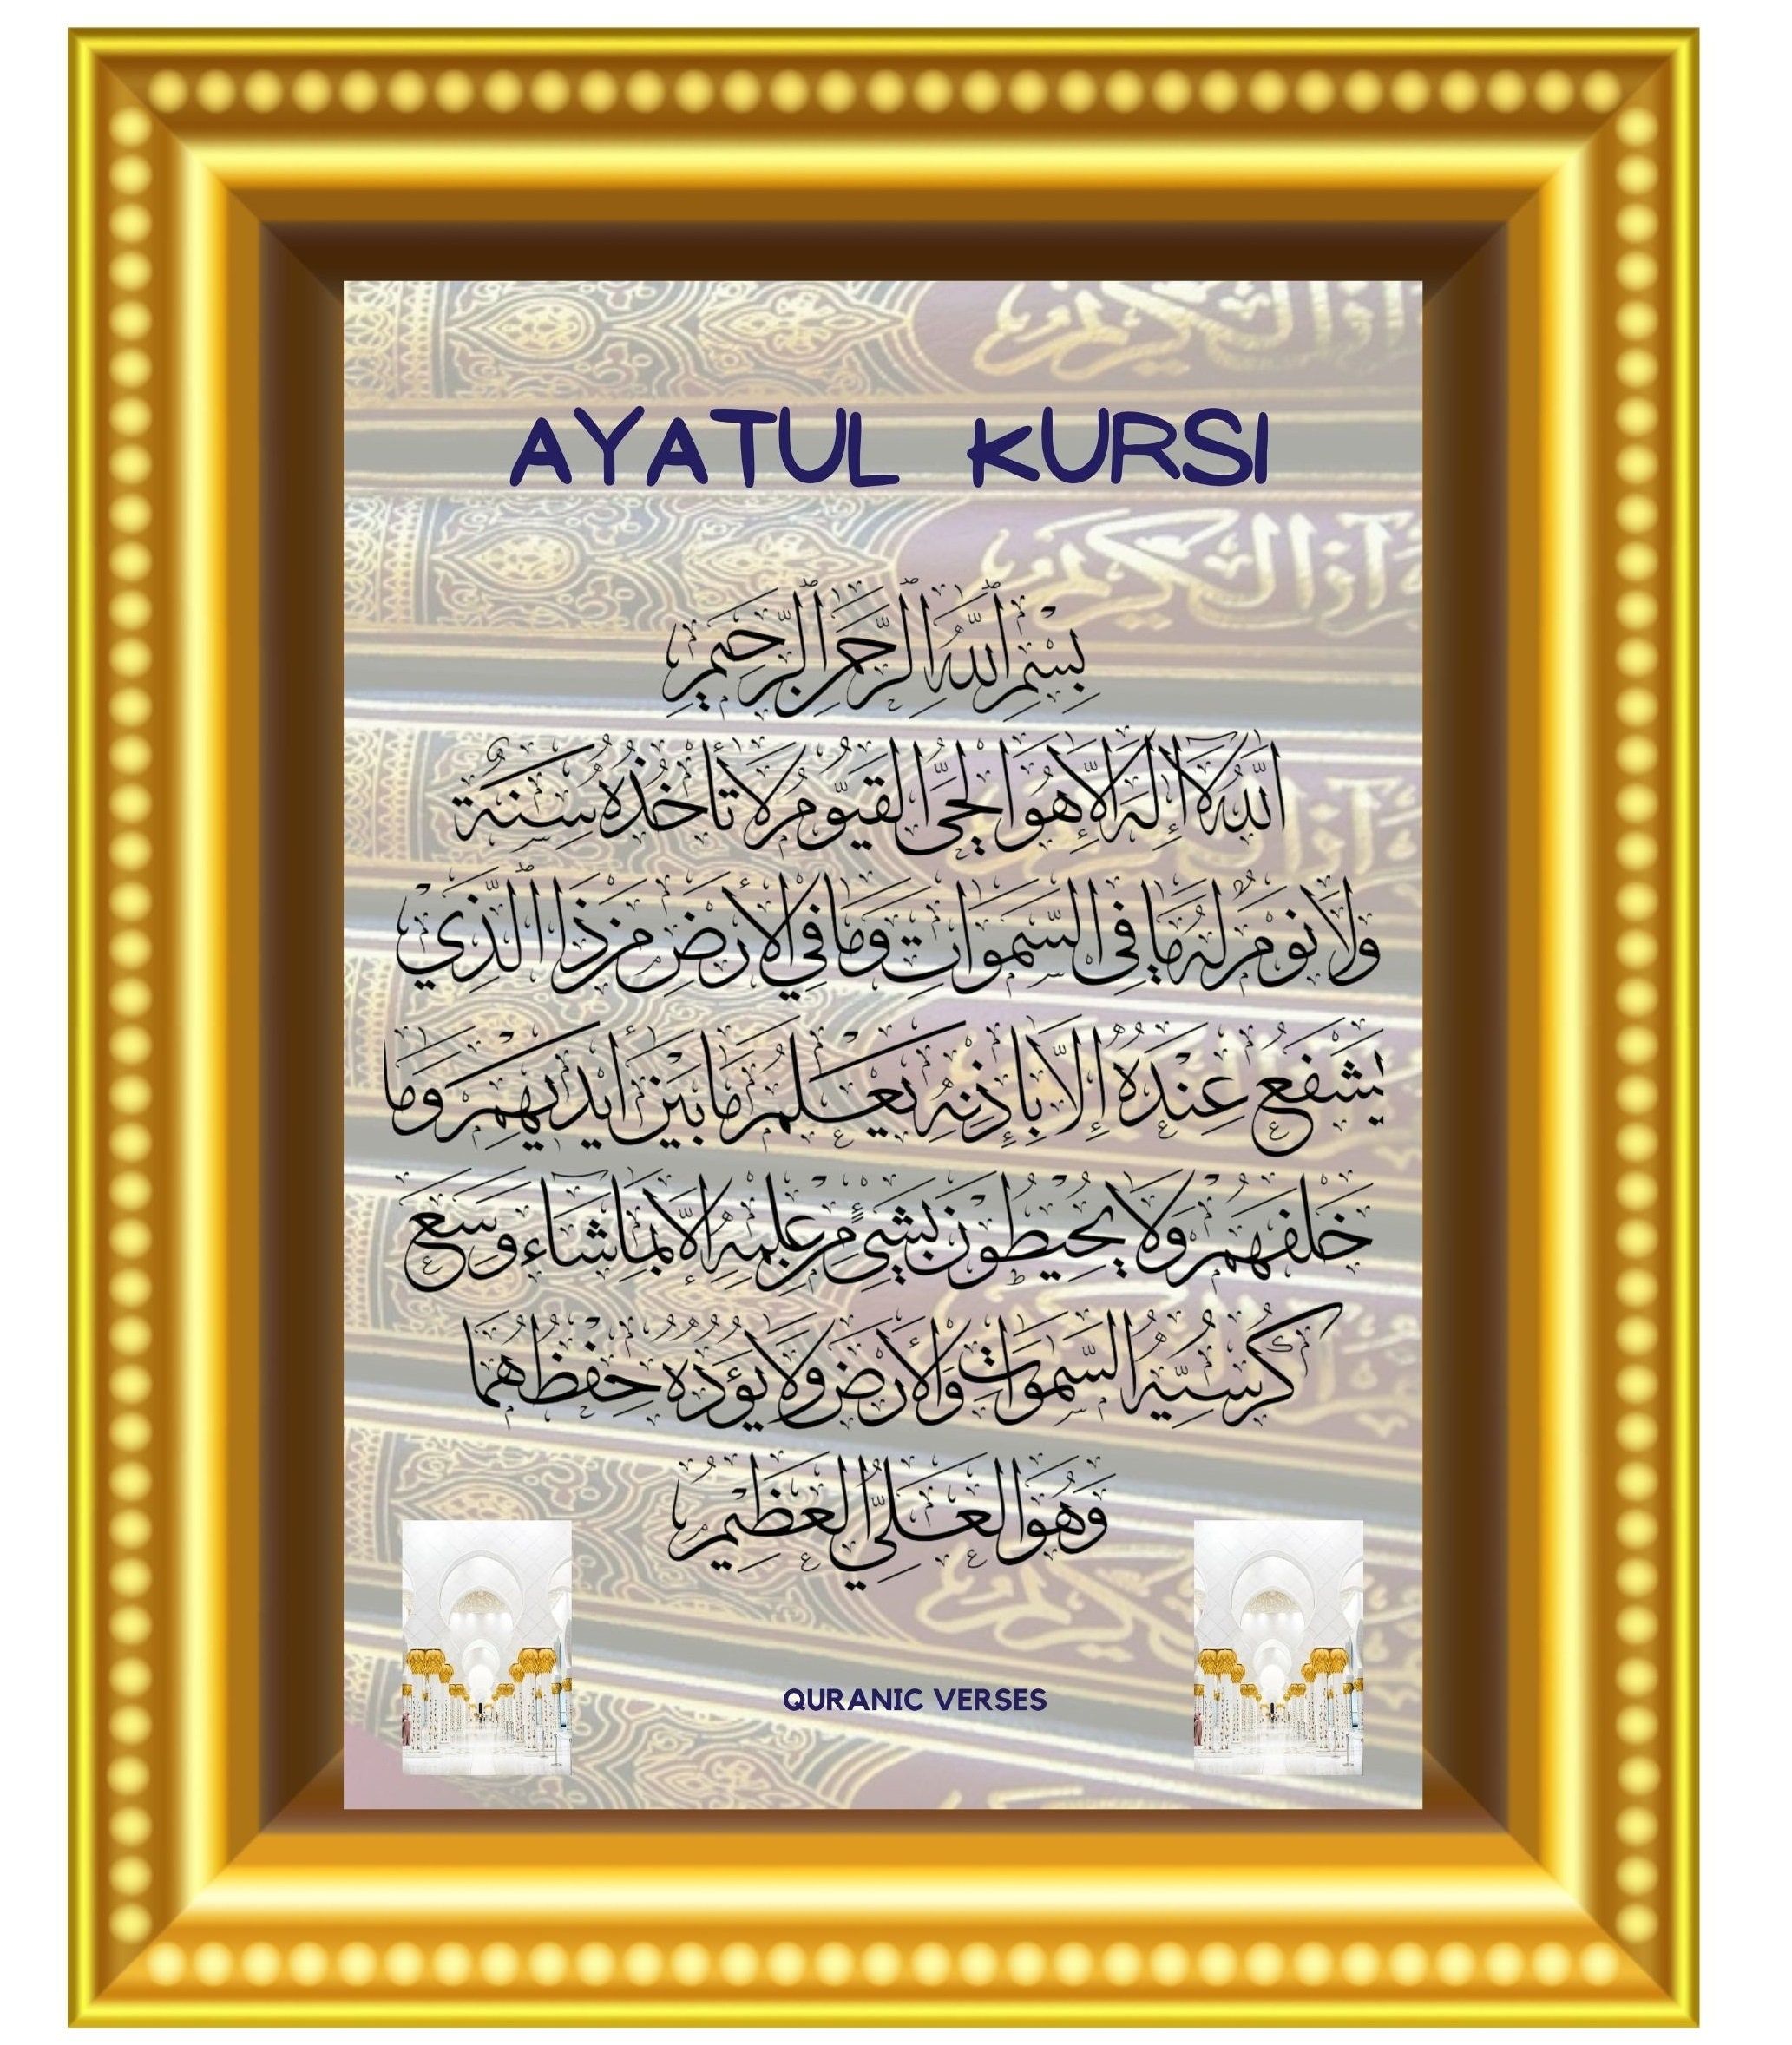 AYATUL KURSI
بِسْمِ ٱللَّهِ ٱلرَّحْمَٰنِ ٱلرَّحِيمِ
اللَّهُ لَا إِلَٰهَ إِلَّا هُوَ الْحَيُّ الْقَيُّومُ لَا تَأْخُذُهُ سِنَةٌ
وَلَا نَوْمٌ لَهُ مَا فِي السَّمَوَاتِ وَمَا فِي الْأَرْضِ مَنْ ذَا الَّذِي
يَشْفَعُ عِنْدَهُ إِلَّا بِإِذْنِهِ يَعْلَمُ مَا بَيْنَ أَيْدِيهِمْ وَمَا
خَلْفَهُمْ وَلَا يُحِيطُونَ بِشَيْءٍ مِنْ عِلْمِهِ إِلَّا بِمَا شَاءَ وَسِعَ
كُرْسِيُّهُ السَّمَوَاتِ وَالْأَرْضَ وَلَا يَؤُدُهُ حِفْظُهُمَا
وَهُوَ الْعَلِيُّ الْعَظِيمُ
QURANIC VERSES